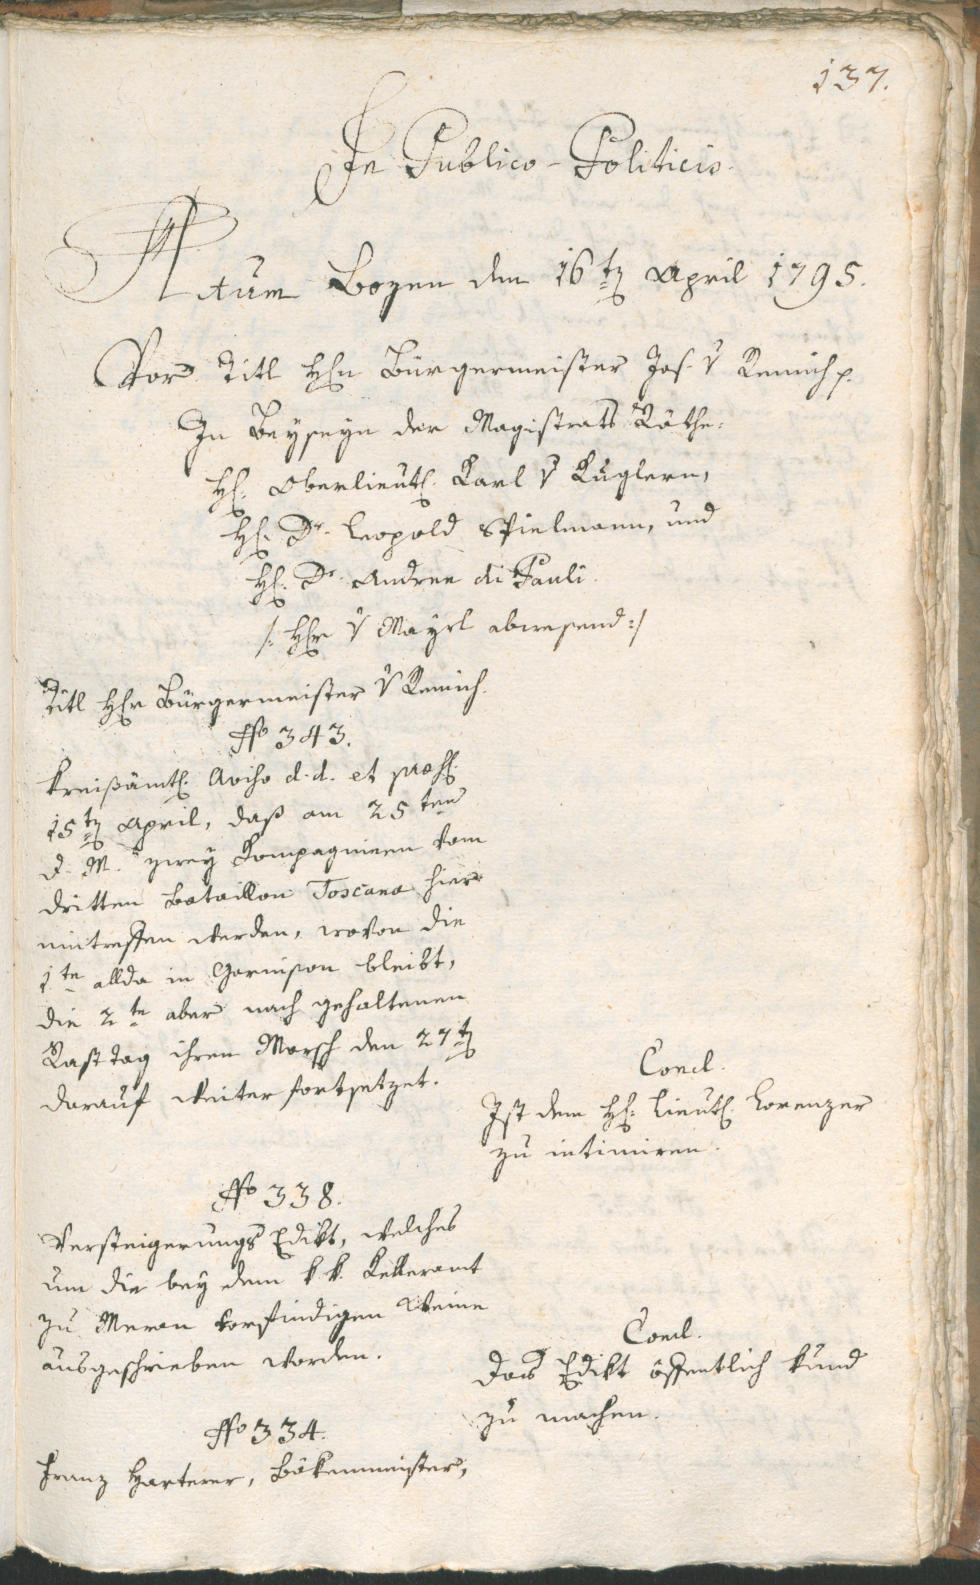 137.
In Publico-Politicis.
Actum Bozen den 16t. April 1795.
Vor Titl Hn Bürgermeister Jos. v Remich p.
In Beyseyn der Magistrats Räthe:
H: Oberlieut. Karl v Kuglern,
H: Dr. Leopold Spielmann, und
H: Dr. Andree di Pauli.
/: Hr v Mayrl abwesend :/
Titl Hr Bürgermeister v Remich.
No 343.
Kreißämtl. Aviso d.d. et praes.
15t. April, daß am 25ten
d. M. zwey Kompagnieen vom
dritten Bataillon Toscana hier
eintreffen werden, wovon die
1te allda in Garnison bleibt,
die 2te aber nach gehaltenen
Rasttag ihren Marsch den 27t.
darauf weiter fortsetzet.
Concl.
Ist dem H: Lieut. Lorenzer
zu intimiren.
No 338.
Versteigerungs Edikt, welches
um die bey dem k k. Kelleramt
zu Meran vorfindigen Weine
ausgeschrieben worden.
Concl.
Das Edikt öffentlich kund
zu machen.
No 334.
Franz Harterer, Bäkenmeister,